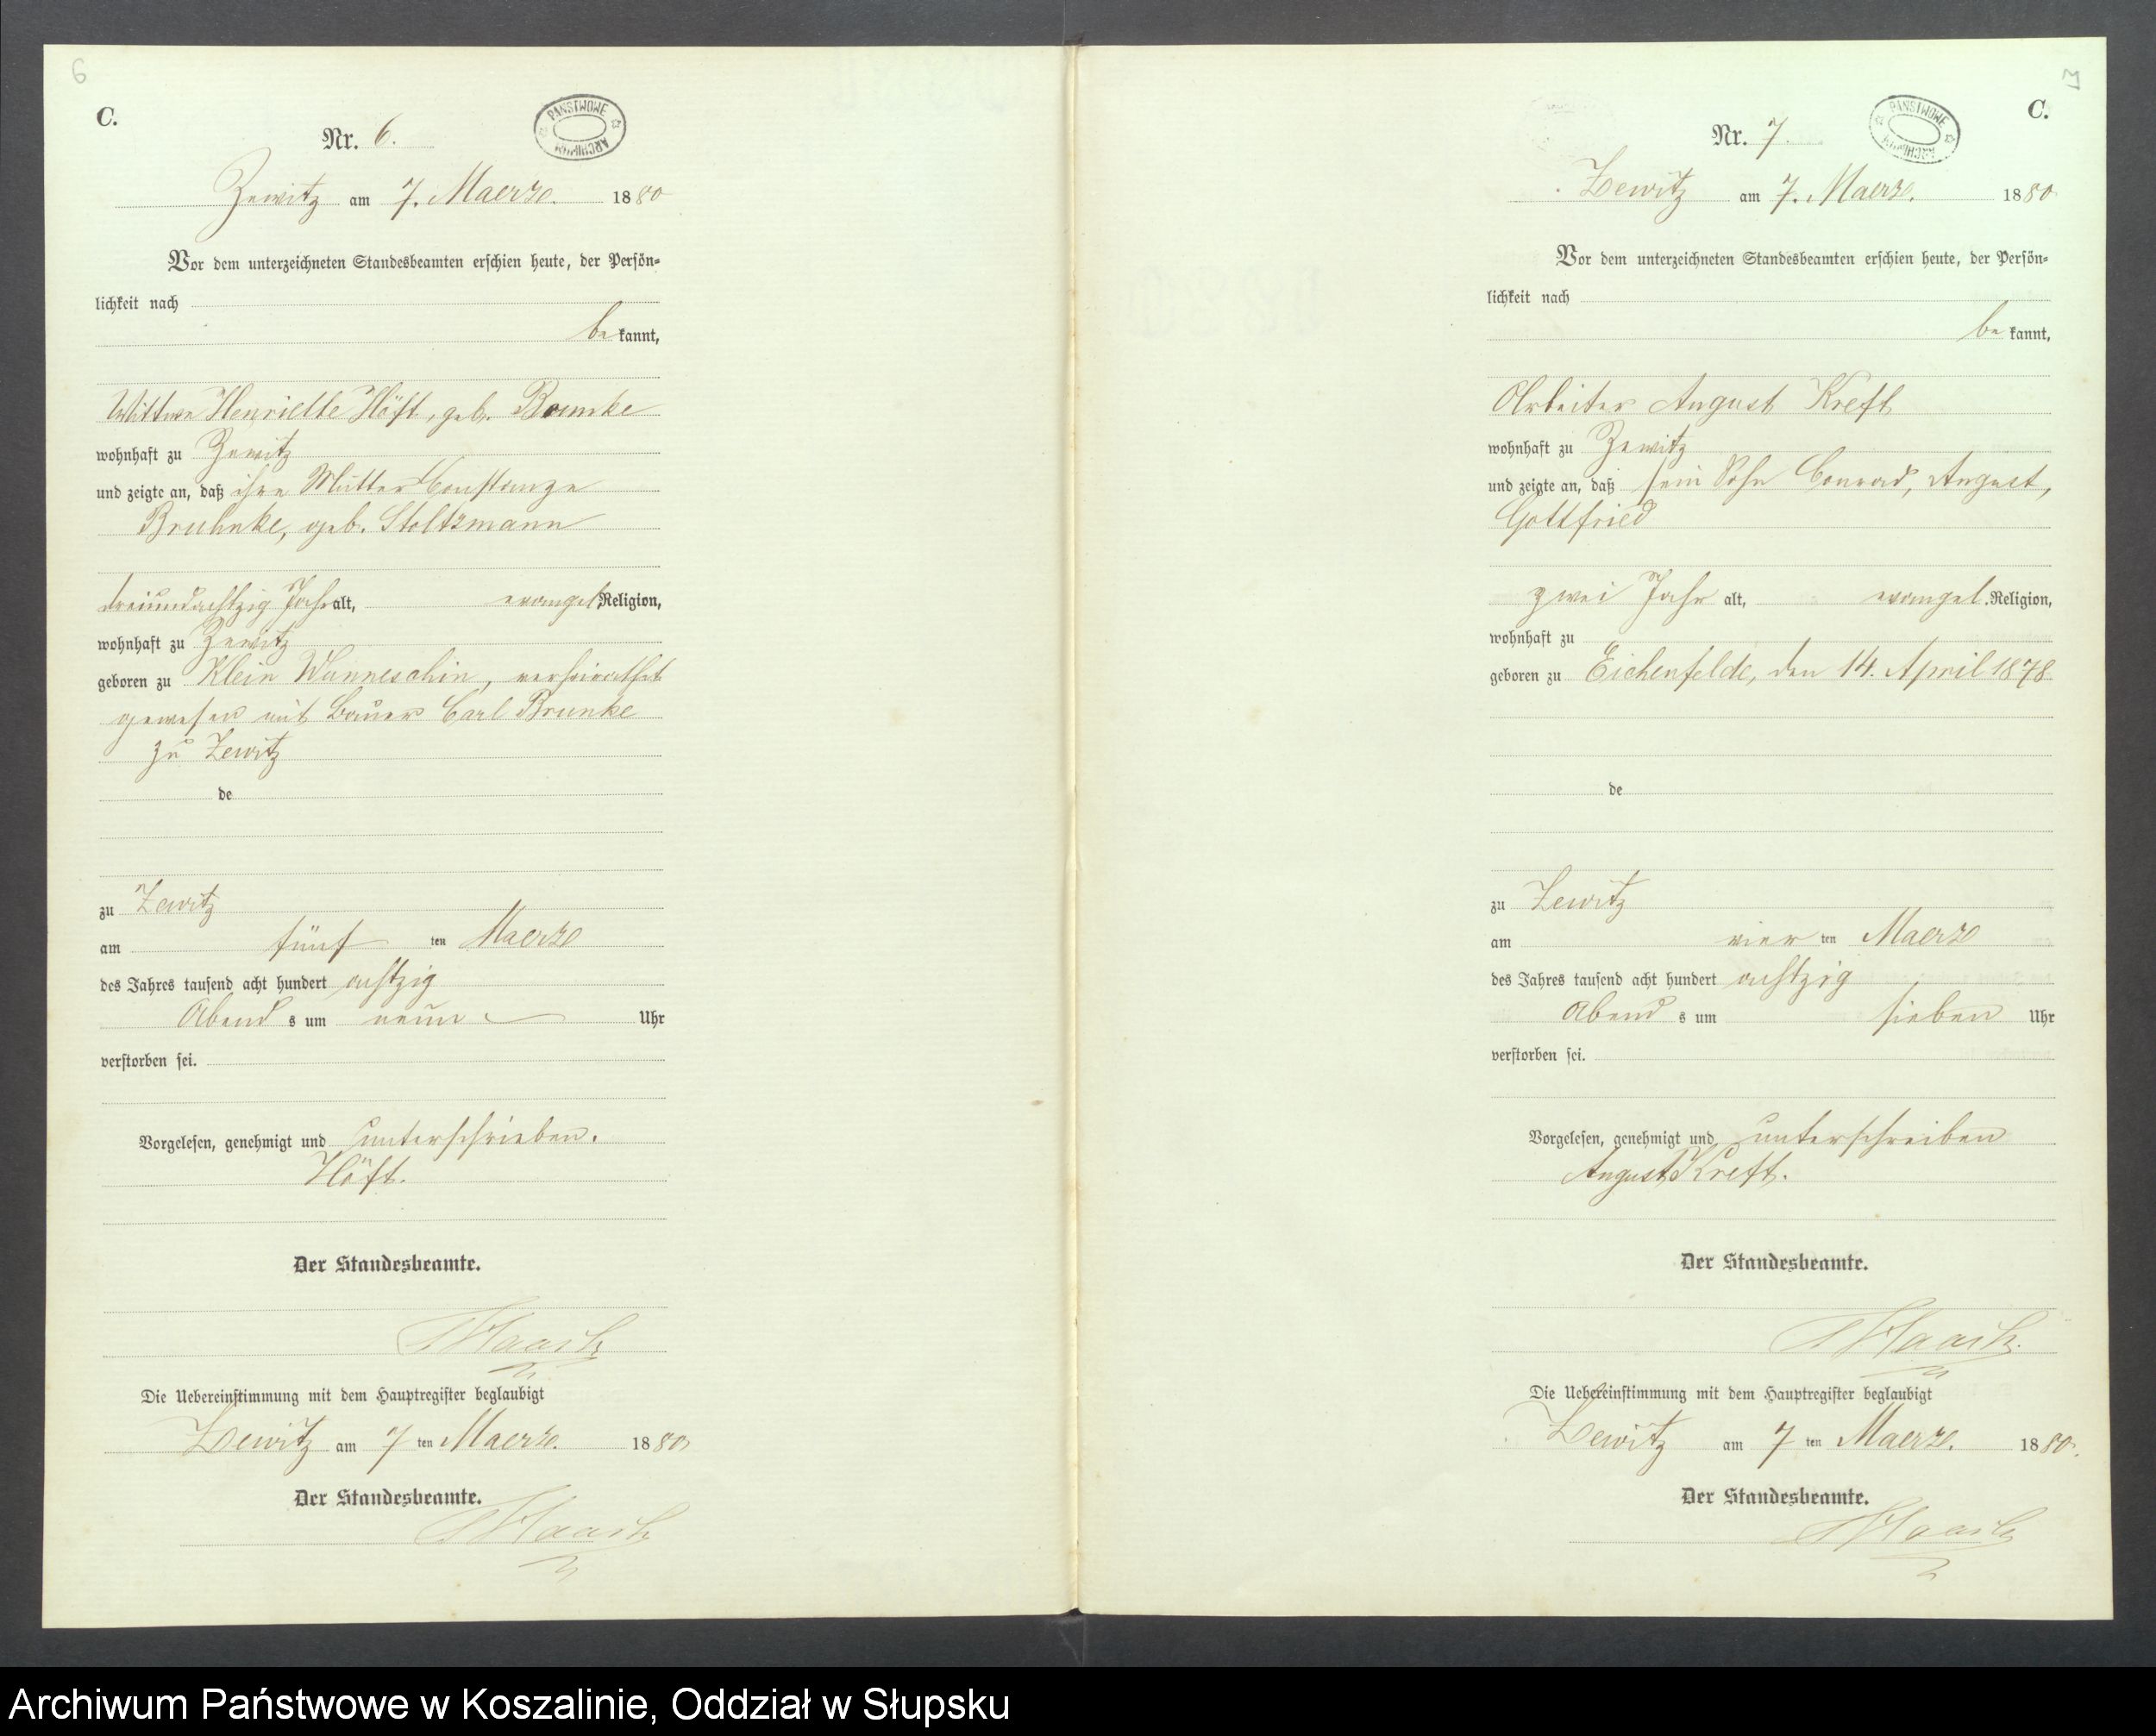 6
C.
PAŃSTWOWE ARCHIWUM
Nr. 6.
Zewitz am 7. Maerze. 1880
Vor dem unterzeichneten Standesbeamten erschien heute, der Persön-
lichkeit nach
be kannt,
Wittwe Henriette Höft, geb. Brunke
wohnhaft zu Zewitz
und zeigte an, daß ihre Mutter Constanze
Bruhnke, geb. Stoltzmann
dreiundachtzig Jahr alt, evangel. Religion,
wohnhaft zu Zewitz
geboren zu Klein Wunneschin, verheirathet
gewesen mit Bauer Carl Brunke
zu Zewitz
de
zu Zewitz
am fünf ten Maerze
des Jahres tausend acht hundert achtzig
Abend s um neun Uhr
verstorben sei.
Vorgelesen, genehmigt und unterschrieben.
Höft.
Der Standesbeamte.
Die Uebereinstimmung mit dem Hauptregister beglaubigt
Zewitz am 7 ten Maerze. 1880
Der Standesbeamte.
7
C.
PAŃSTWOWE ARCHIWUM
Nr. 7.
Zewitz am 7. Maerz. 1880
Vor dem unterzeichneten Standesbeamten erschien heute, der Persön-
lichkeit nach
be kannt,
Arbeiter August Kreft
wohnhaft zu Zewitz
und zeigte an, daß sein Sohn Conrad, August,
Gottfried
zwei Jahr alt, evangel. Religion,
wohnhaft zu
geboren zu Eichenfelde, den 14. April 1878
de
zu Zewitz
am vier ten Maerze
des Jahres tausend acht hundert achtzig
Abend s um sieben Uhr
verstorben sei.
Vorgelesen, genehmigt und unterschreiben
August Kreft.
Der Standesbeamte.
Die Uebereinstimmung mit dem Hauptregister beglaubigt
Zewitz am 7 ten Maerze. 1880.
Der Standesbeamte.
Archiwum Państwowe w Koszalinie, Oddział w Słupsku